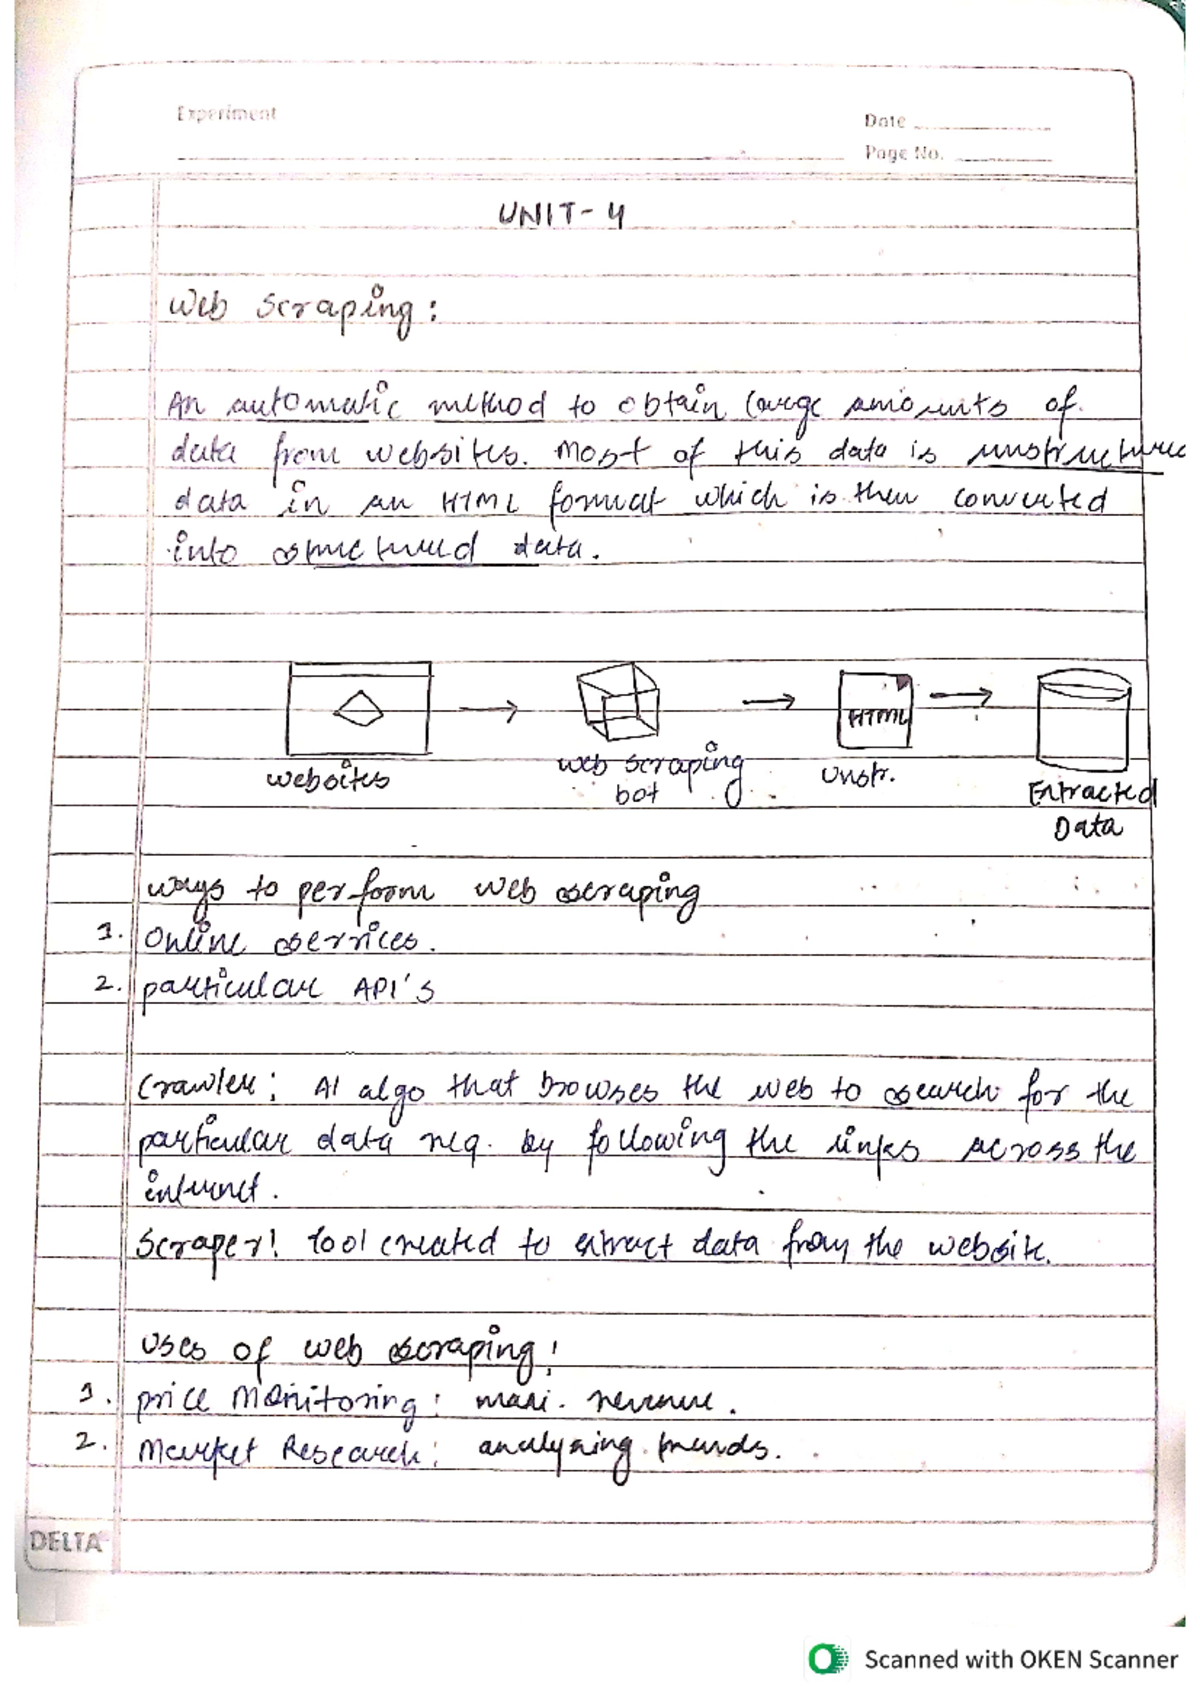 Experiment
Date
Page No.
UNIT-4
Web Scraping:
An automatic method to obtain large amounts of
data from websites. Most of this data is unstructured
data in an HTML format which is then converted
into structured data.
HTML
websites
web scraping
bot
Unstr.
Extracted
Data
ways to perform web scraping
1. Online services.
2. particular API's
Crawler: AI algo that browses the web to search for the
particular data req. by following the links across the
internet.
Scraper: tool created to extract data from the website.
Uses of web scraping:
1. price Monitoring: maxi. revenue.
2. Market Research: analyzing trends.
DELTA
Scanned with OKEN Scanner